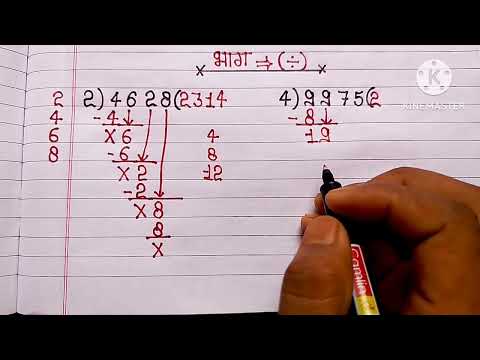 भाग ⇒ (÷)
2
4
6
8
2) 4628 (2314
-4
×6
-6
×2
-2
×8
8
×
4
8
12
4) 9975 (2
-8
19
K
KINEMASTER
Camlin